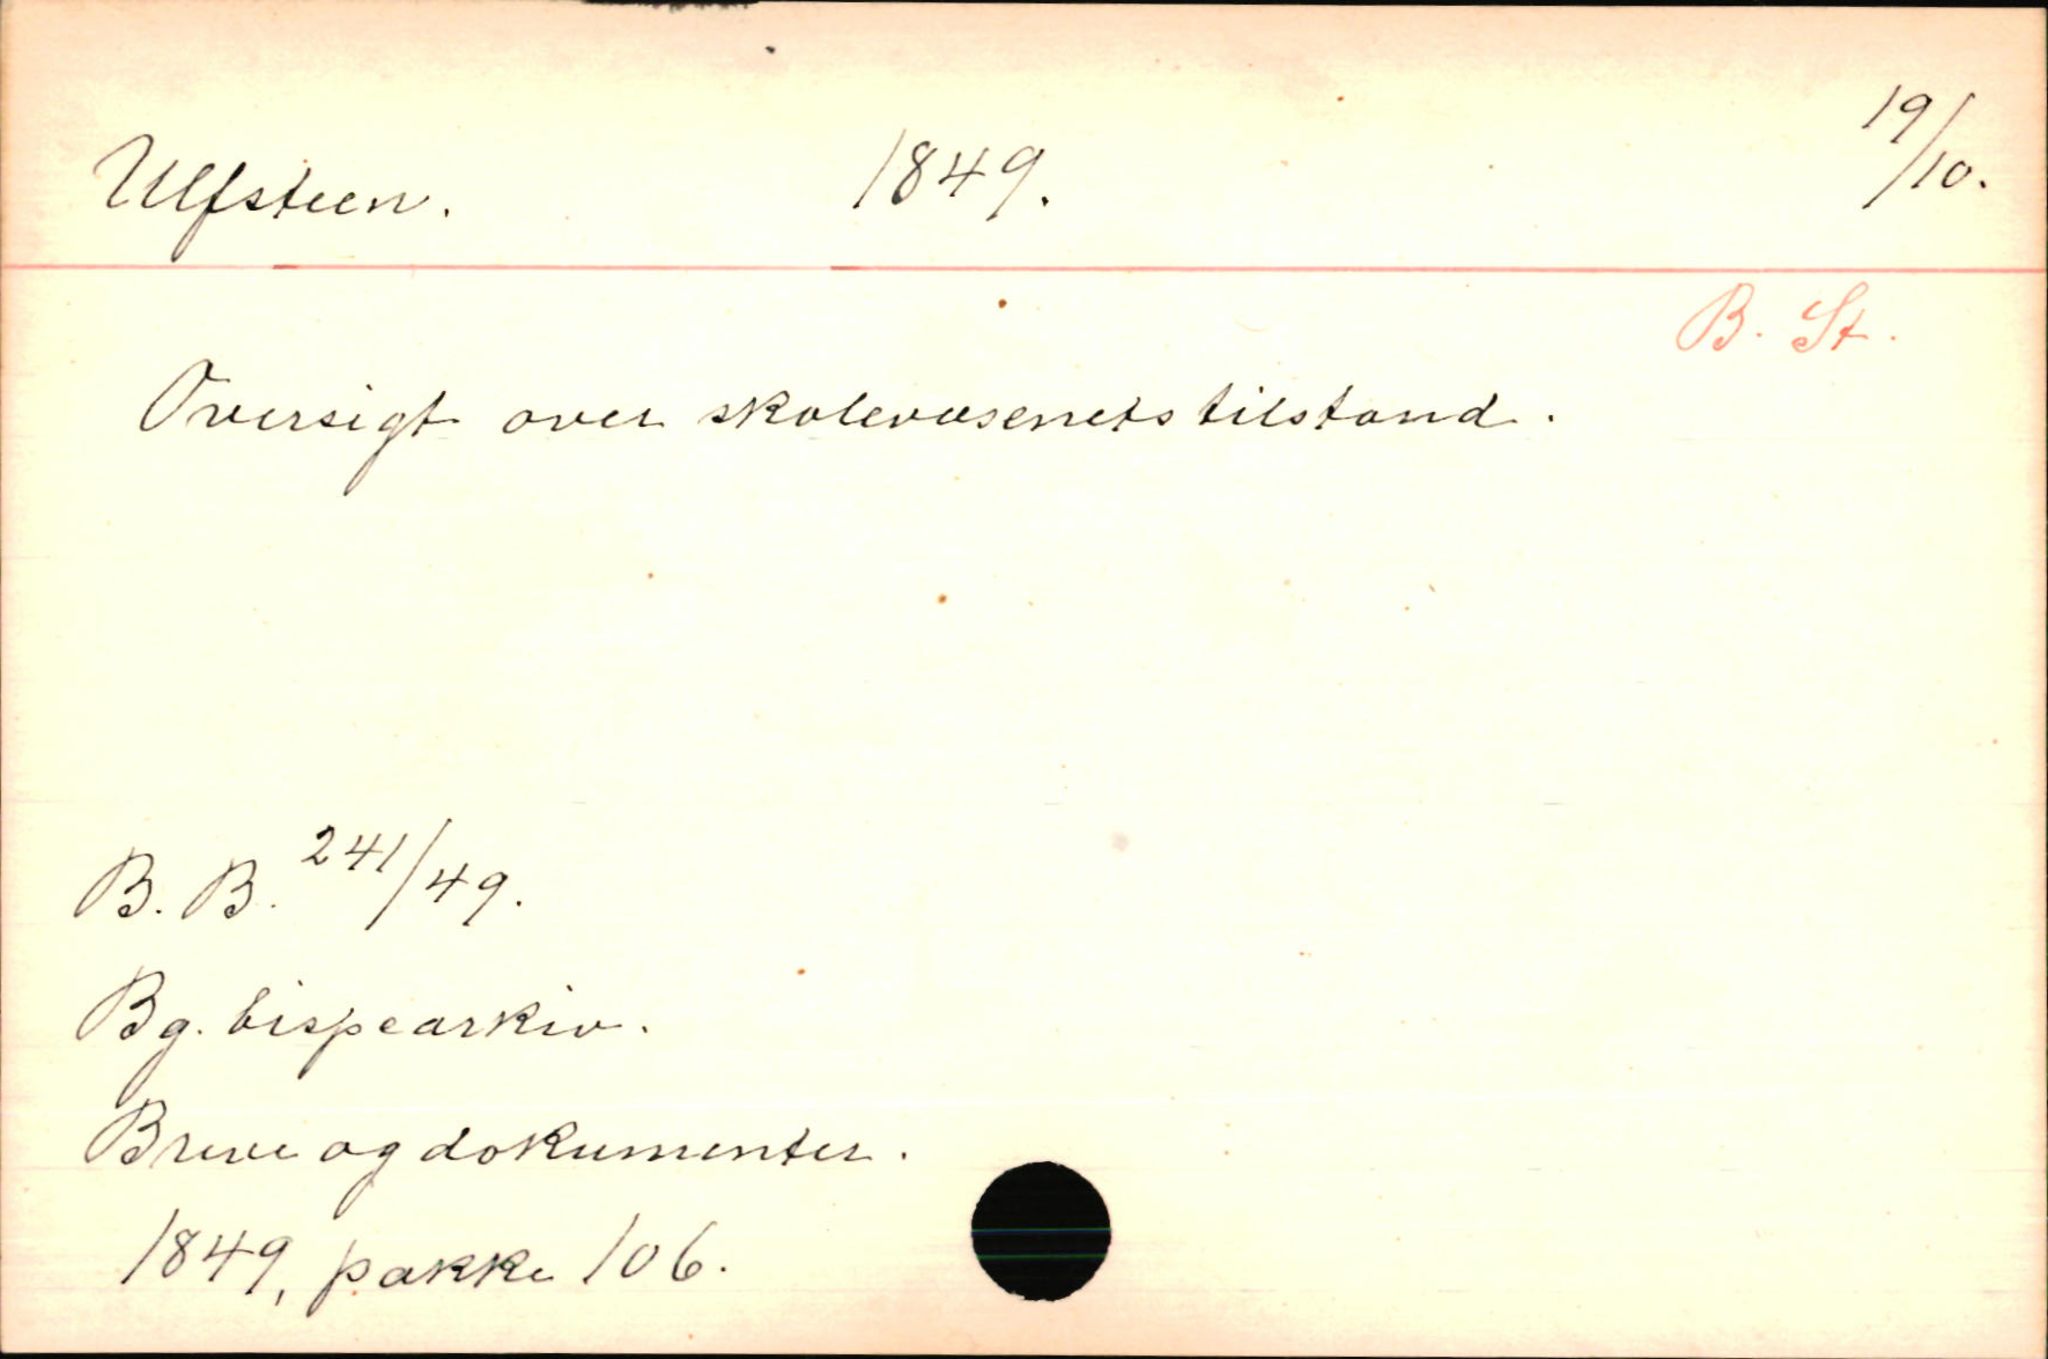 Ulfsteen. 1849. 19/10.
B. St.
Oversigt over skolevæsenets tilstand.
B. B. 241/49.
Bg. bispearkiv.
Breve og dokumenter.
1849, pakke 106.